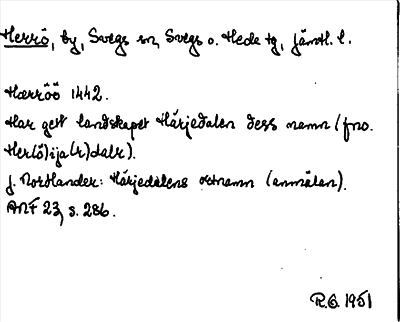 Herrö, by, Svegs sn, Svegs o. Hede tg, Jämtl. l.
Hærröö 1442.
Har gett landskapet Härjedalen dess namn (fno.
Her(ö)ija(r)dalr).
J. Nordlander: Härjedalens ortnamn (anmälan).
ANF 23, s. 286.
R.O. 1951